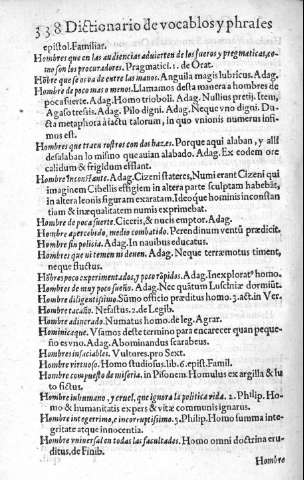 338 Dictionario de vocablos y phrases
epistol. Familiar.
Hombres que en las audiencias aduierten de los fueros y pregmaticas, co-
mo son los procuradores. Pragmatici. 1. de Orat.
Hõbre que se os va de entre las manos. Anguila magis lubricus. Adag.
Hombre de poco mas o menos. Llamamos desta manera a hombres de
poca suerte. Adag. Homo trioboli. Adag. Nullius pretij. Item,
Agaso tressis. Adag. Pilo digni. Adag. Neque vno digni. Du-
cta metaphora à iactu talorum, in quo vnionis numerus infi-
mus est.
Hombres que traen rostros con dos hazes. Porque aqui alaban, y alli
desalaban lo mismo que auian alabado. Adag. Ex eodem ore
calidum & frigidum efflant.
Hombre Inconstante. Adag. Cizeni stateres, Numi erant Cizeni qui
imaginem Cibellis effigiem in altera parte sculptam habebãt,
in altera leonis figuram exaratam. Ideoque hominis inconstan
tium & inæqualitatem numis exprimebat.
Hombre de poca suerte. Ciceris, & nucis emptor. Adag.
Hombre apercebido, medio combatido. Perendinum ventũ prædicit.
Hombre sin policia. Adag. In nauibus educatus.
Hombres que ni temen ni deuen. Adag. Neque terræmotus timent,
neque fluctus.
Hõbres poco experimentados, y poco rapidos. Adag. Inexplorat⁹ homo.
Hombres de muy poco sueño. Adag. Nec quãtum Lusciniæ dormiũt.
Hombre diligentissimo. Sũmo officio præditus homo. 3. act. in Ver.
Hombre tacaño. Nefastus. 2. de Legib.
Hombre adinerado. Numatus homo. de leg. Agrar.
Hominicaque. Vsamos deste termino para encarecer quan peque-
ño es vno. Adag. Abominandus scarabeus.
Hombres insaciables. Vultores. pro Sext.
Hombre virtuoso. Homo studiosus. lib. 6. epist. Famil.
Hombre compuesto de miseria. in Pisonem. Homulus ex argilla & lu
to fictus.
Hombre inhumano, y cruel, que ignora la politica vida. 2. Philip. Ho-
mo & humanitatis expers & vitæ communis ignarus.
Hombre integerrimo, e incorruptissimo. 3. Philip. Homo summa inte-
gritate atque innocentia.
Hombre vniuersal en todas las facultades. Homo omni doctrina eru-
ditus. de Finib.
Hombre